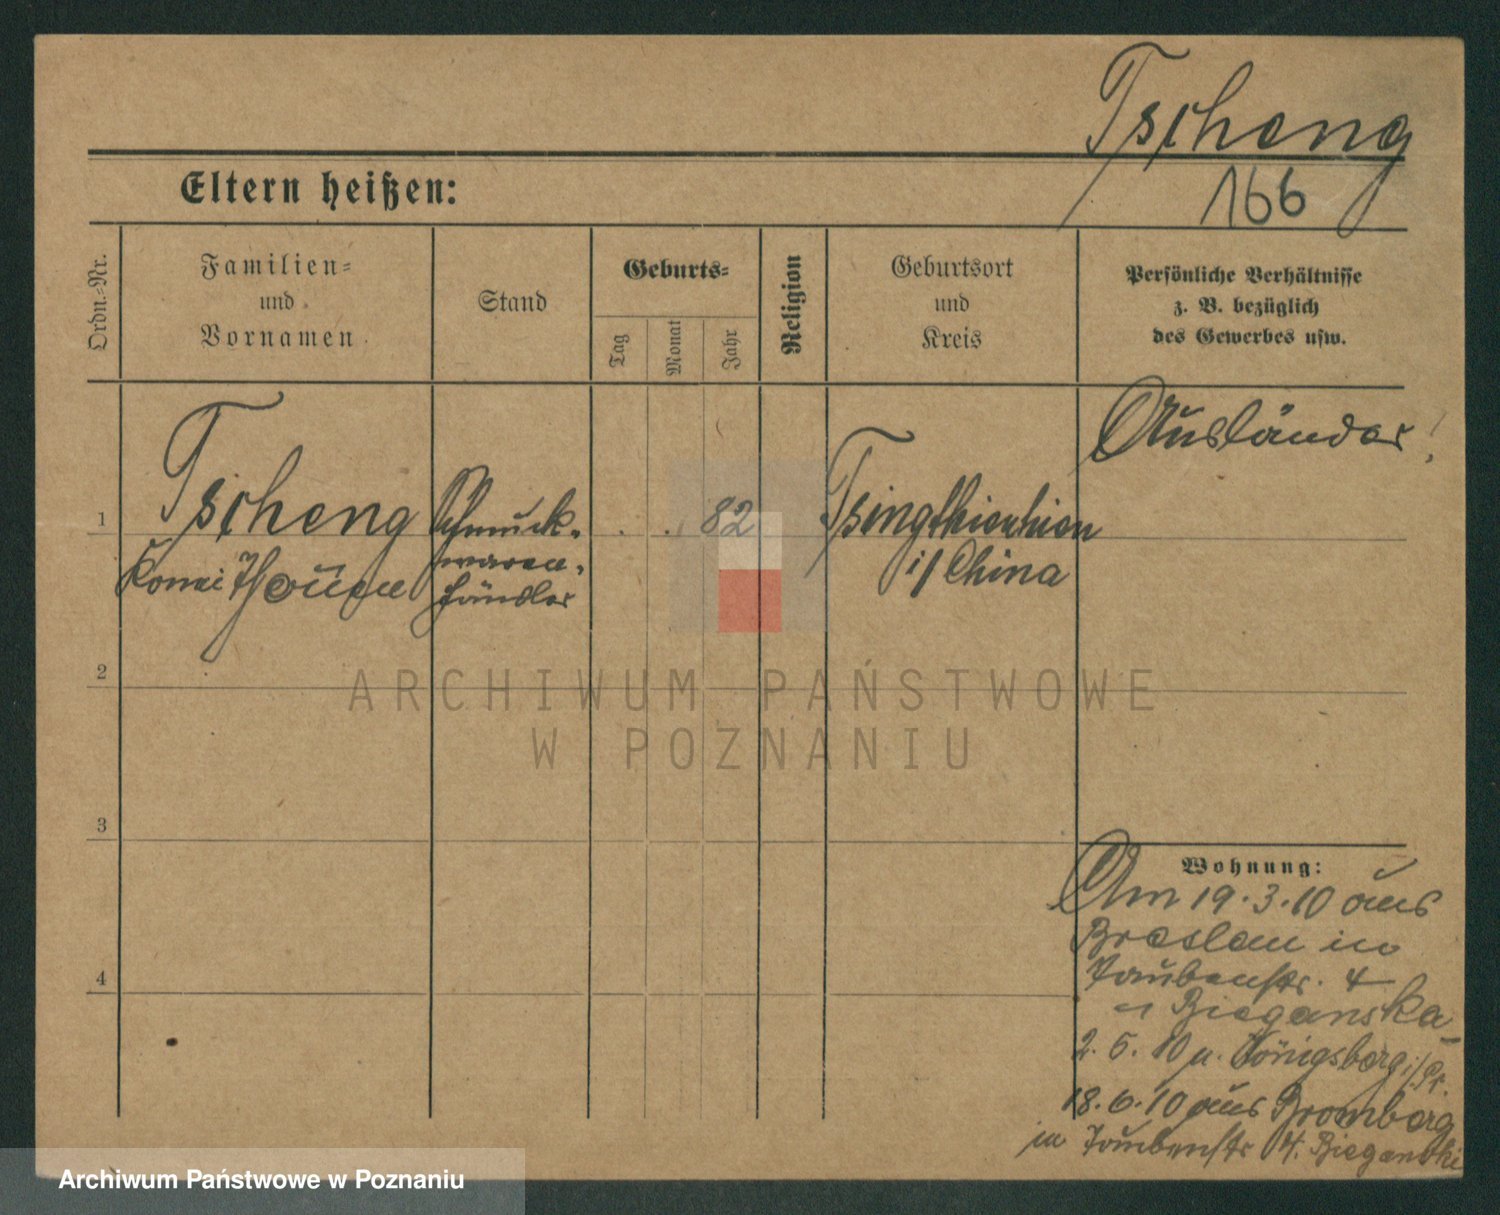 Tscheng
166
Eltern heißen:
Ordn.-Nr.
Familien-
und
Vornamen
Stand
Geburts-
Tag
Monat
Jahr
Religion
Geburtsort
und
Kreis
Persönliche Verhältnisse
z. B. bezüglich
des Gewerbes usw.
Ausländer!
1
Tscheng
Schmuck-
waren-
händler
. . 82
Tsingthienhien
i/ China
2
ARCHIWUM PAŃSTWOWE
W POZNANIU
3
4
Wohnung:
Am 19.3.10 aus
Breslau in
Taubenstr. 4
Bieganska
2.5.10 n. Königsberg i/Pr.
18.6.10 aus Bromberg
in Taubenstr 4. Bieganski
Archiwum Państwowe w Poznaniu